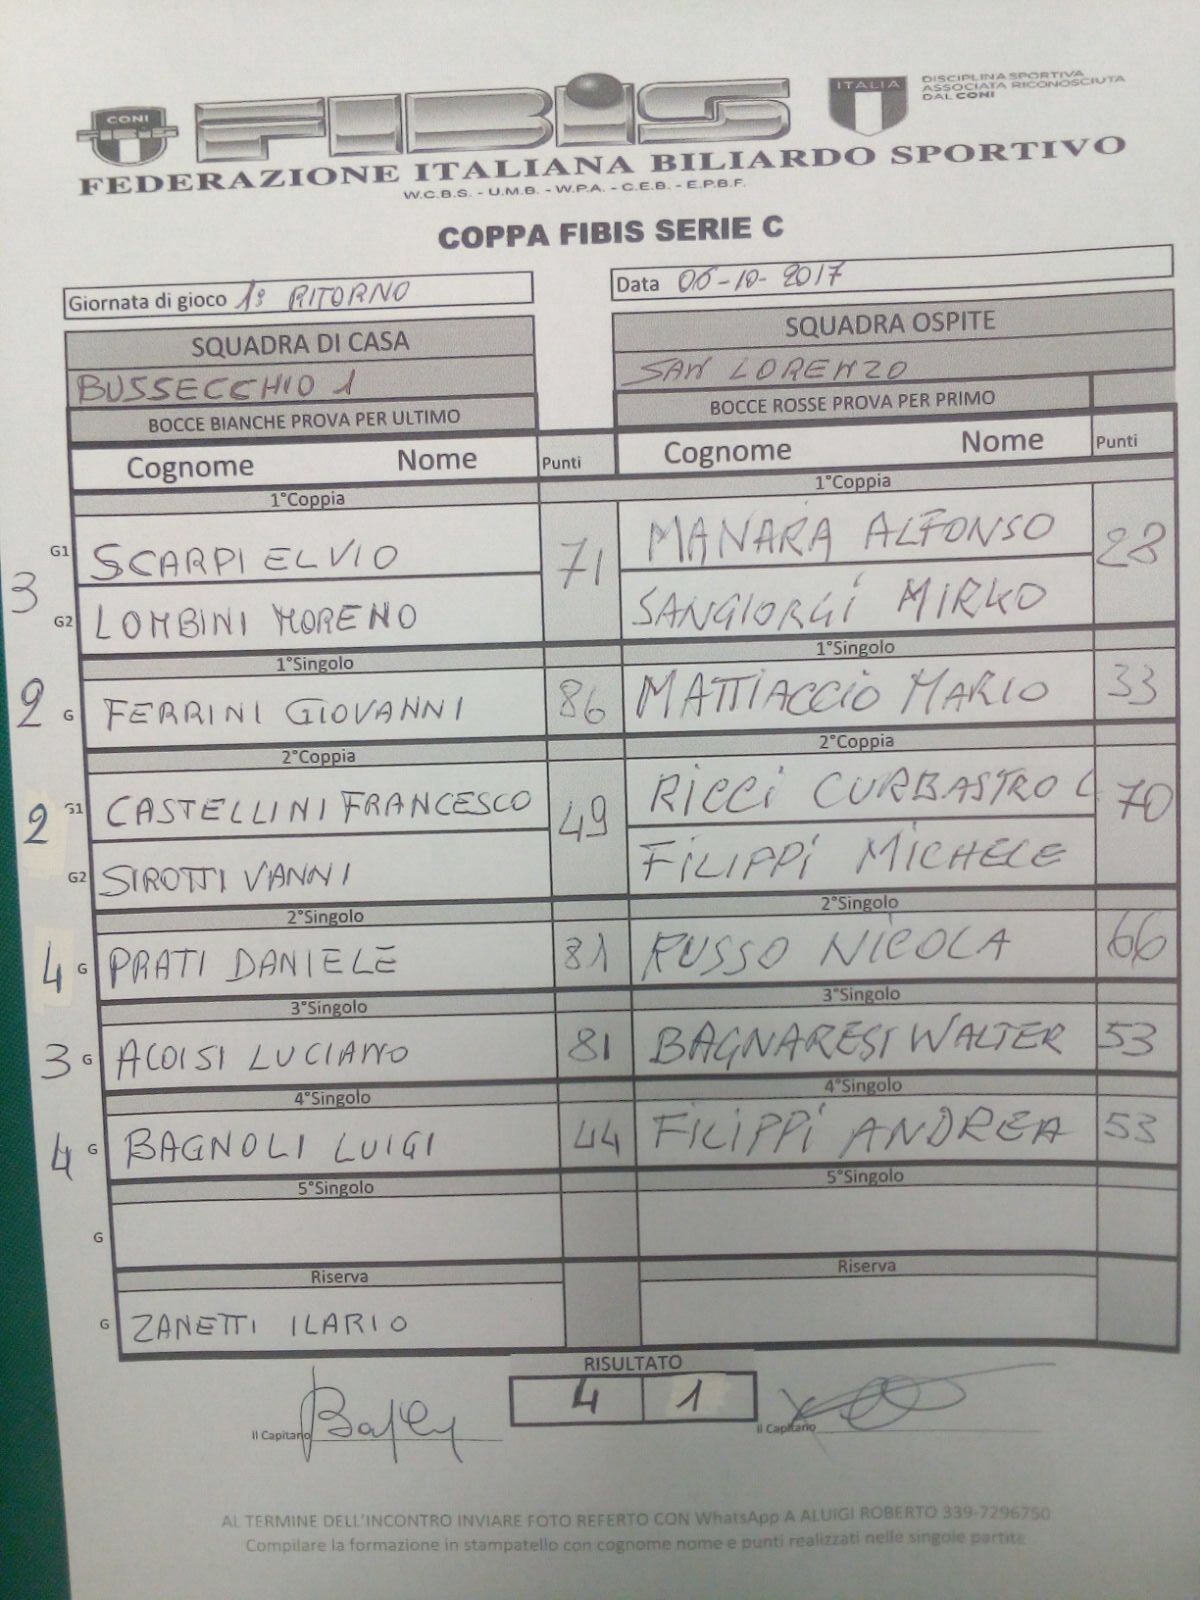 CONI
FIBIS
ITALIA
DISCIPLINA SPORTIVA
ASSOCIATA RICONOSCIUTA
DAL CONI
FEDERAZIONE ITALIANA BILIARDO SPORTIVO
W.C.B.S. - U.M.B. - W.P.A. - C.E.B. - E.P.B.F.
COPPA FIBIS SERIE C
Giornata di gioco 1° RITORNO
Data 06-10-2017
SQUADRA DI CASA
SQUADRA OSPITE
BUSSECCHIO 1
SAN LORENZO
BOCCE BIANCHE PROVA PER ULTIMO
BOCCE ROSSE PROVA PER PRIMO
Cognome Nome Punti Cognome Nome Punti
1°Coppia 1°Coppia
G1 SCARPI ELVIO 71 MANARA ALFONSO 28
3
G2 LOMBINI MORENO SANGIORGI MIRKO
1°Singolo 1°Singolo
2 G FERRINI GIOVANNI 86 MATTIACCIO MARIO 33
2°Coppia 2°Coppia
2 G1 CASTELLINI FRANCESCO 49 RICCI CURBASTRO C 70
G2 SIROTTI VANNI FILIPPI MICHELE
2°Singolo 2°Singolo
4 G PRATI DANIELE 81 RUSSO NICOLA 66
3°Singolo 3°Singolo
3 G ALOISI LUCIANO 81 BAGNARESI WALTER 53
4°Singolo 4°Singolo
4 G BAGNOLI LUIGI 44 FILIPPI ANDREA 53
5°Singolo 5°Singolo
G
Riserva Riserva
G ZANETTI ILARIO
RISULTATO
4 1
Il Capitano
Il Capitano
AL TERMINE DELL'INCONTRO INVIARE FOTO REFERTO CON WhatsApp A ALUIGI ROBERTO 339-7296750
Compilare la formazione in stampatello con cognome nome e punti realizzati nelle singole partite